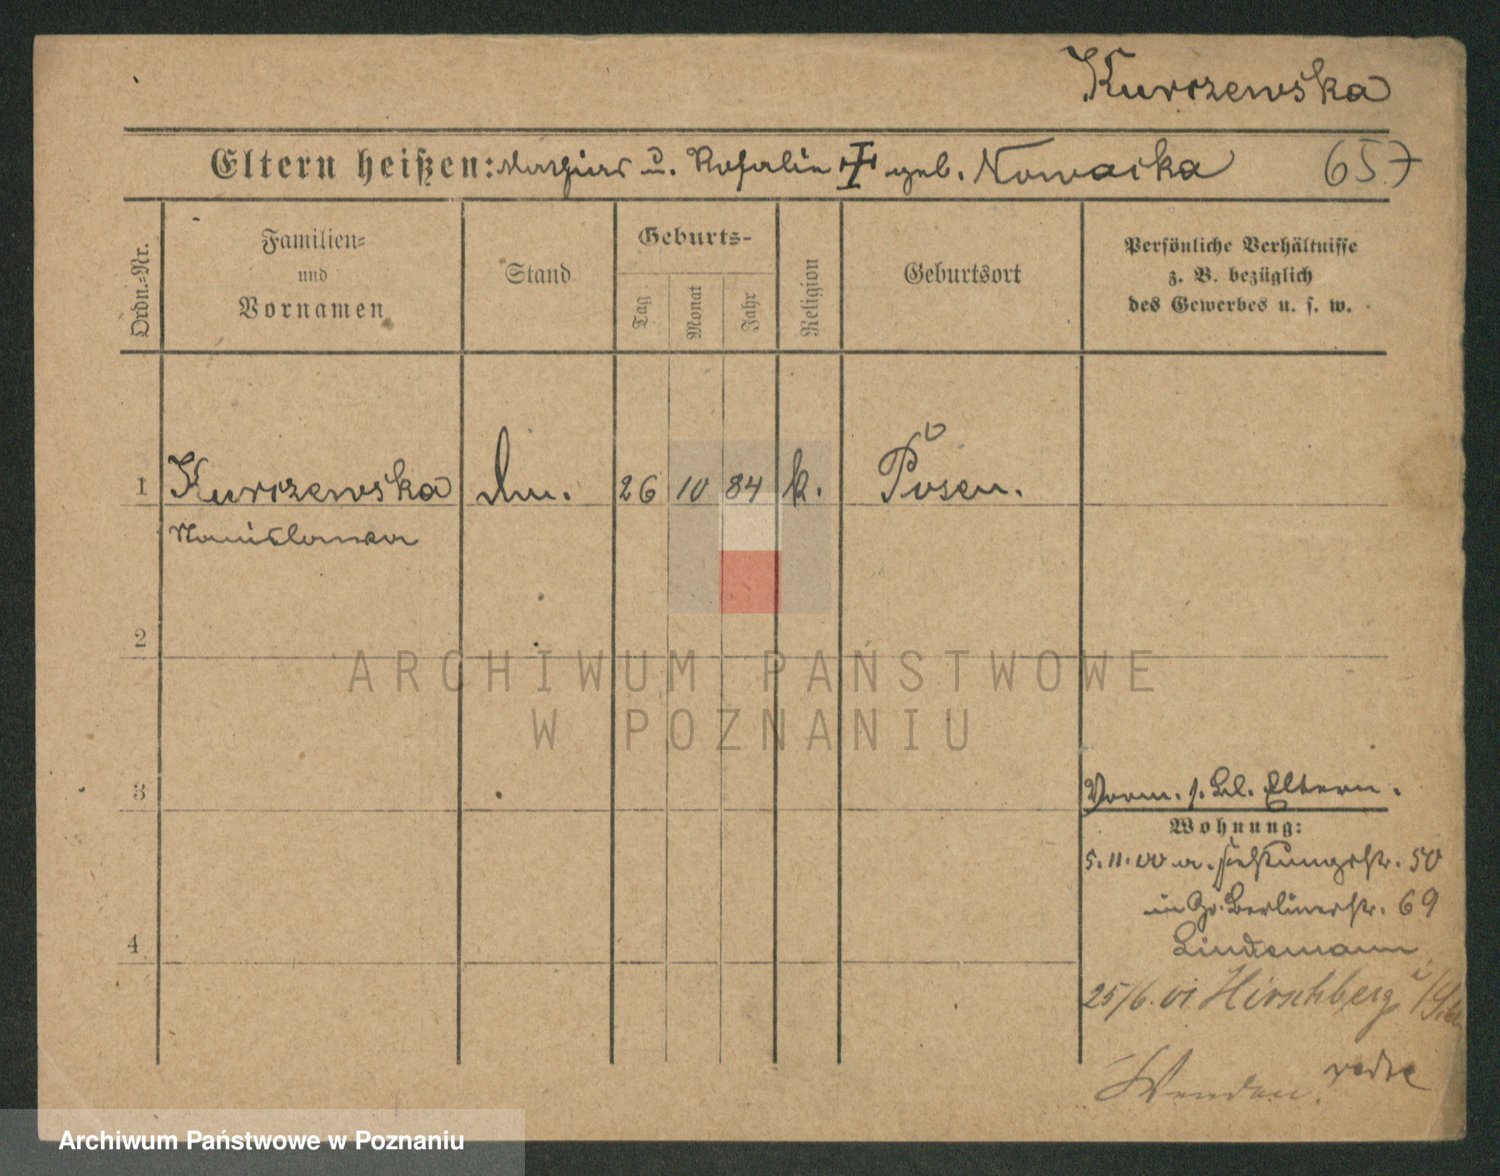 Kurczewska
Eltern heißen: Mathias u. Rosalie geb. Nowacka 657
Ordn.-Nr.
Familien-
und
Vornamen
Stand
Geburts-
Tag
Monat
Jahr
Religion
Geburtsort
Persönliche Verhältnisse
z. B. bezüglich
des Gewerbes u. s. w.
1 Kurczewska 26 10 84 k. Posen.
Stanislawa
2
ARCHIWUM PAŃSTWOWE
W POZNANIU
3
Vorm. s. Bl. Eltern.
Wohnung:
5.11.00 a. Festungsstr. 50
in Gr. Berlinerstr. 69
Lindemann
4
25/6. 01 Hirschberg
Archiwum Państwowe w Poznaniu